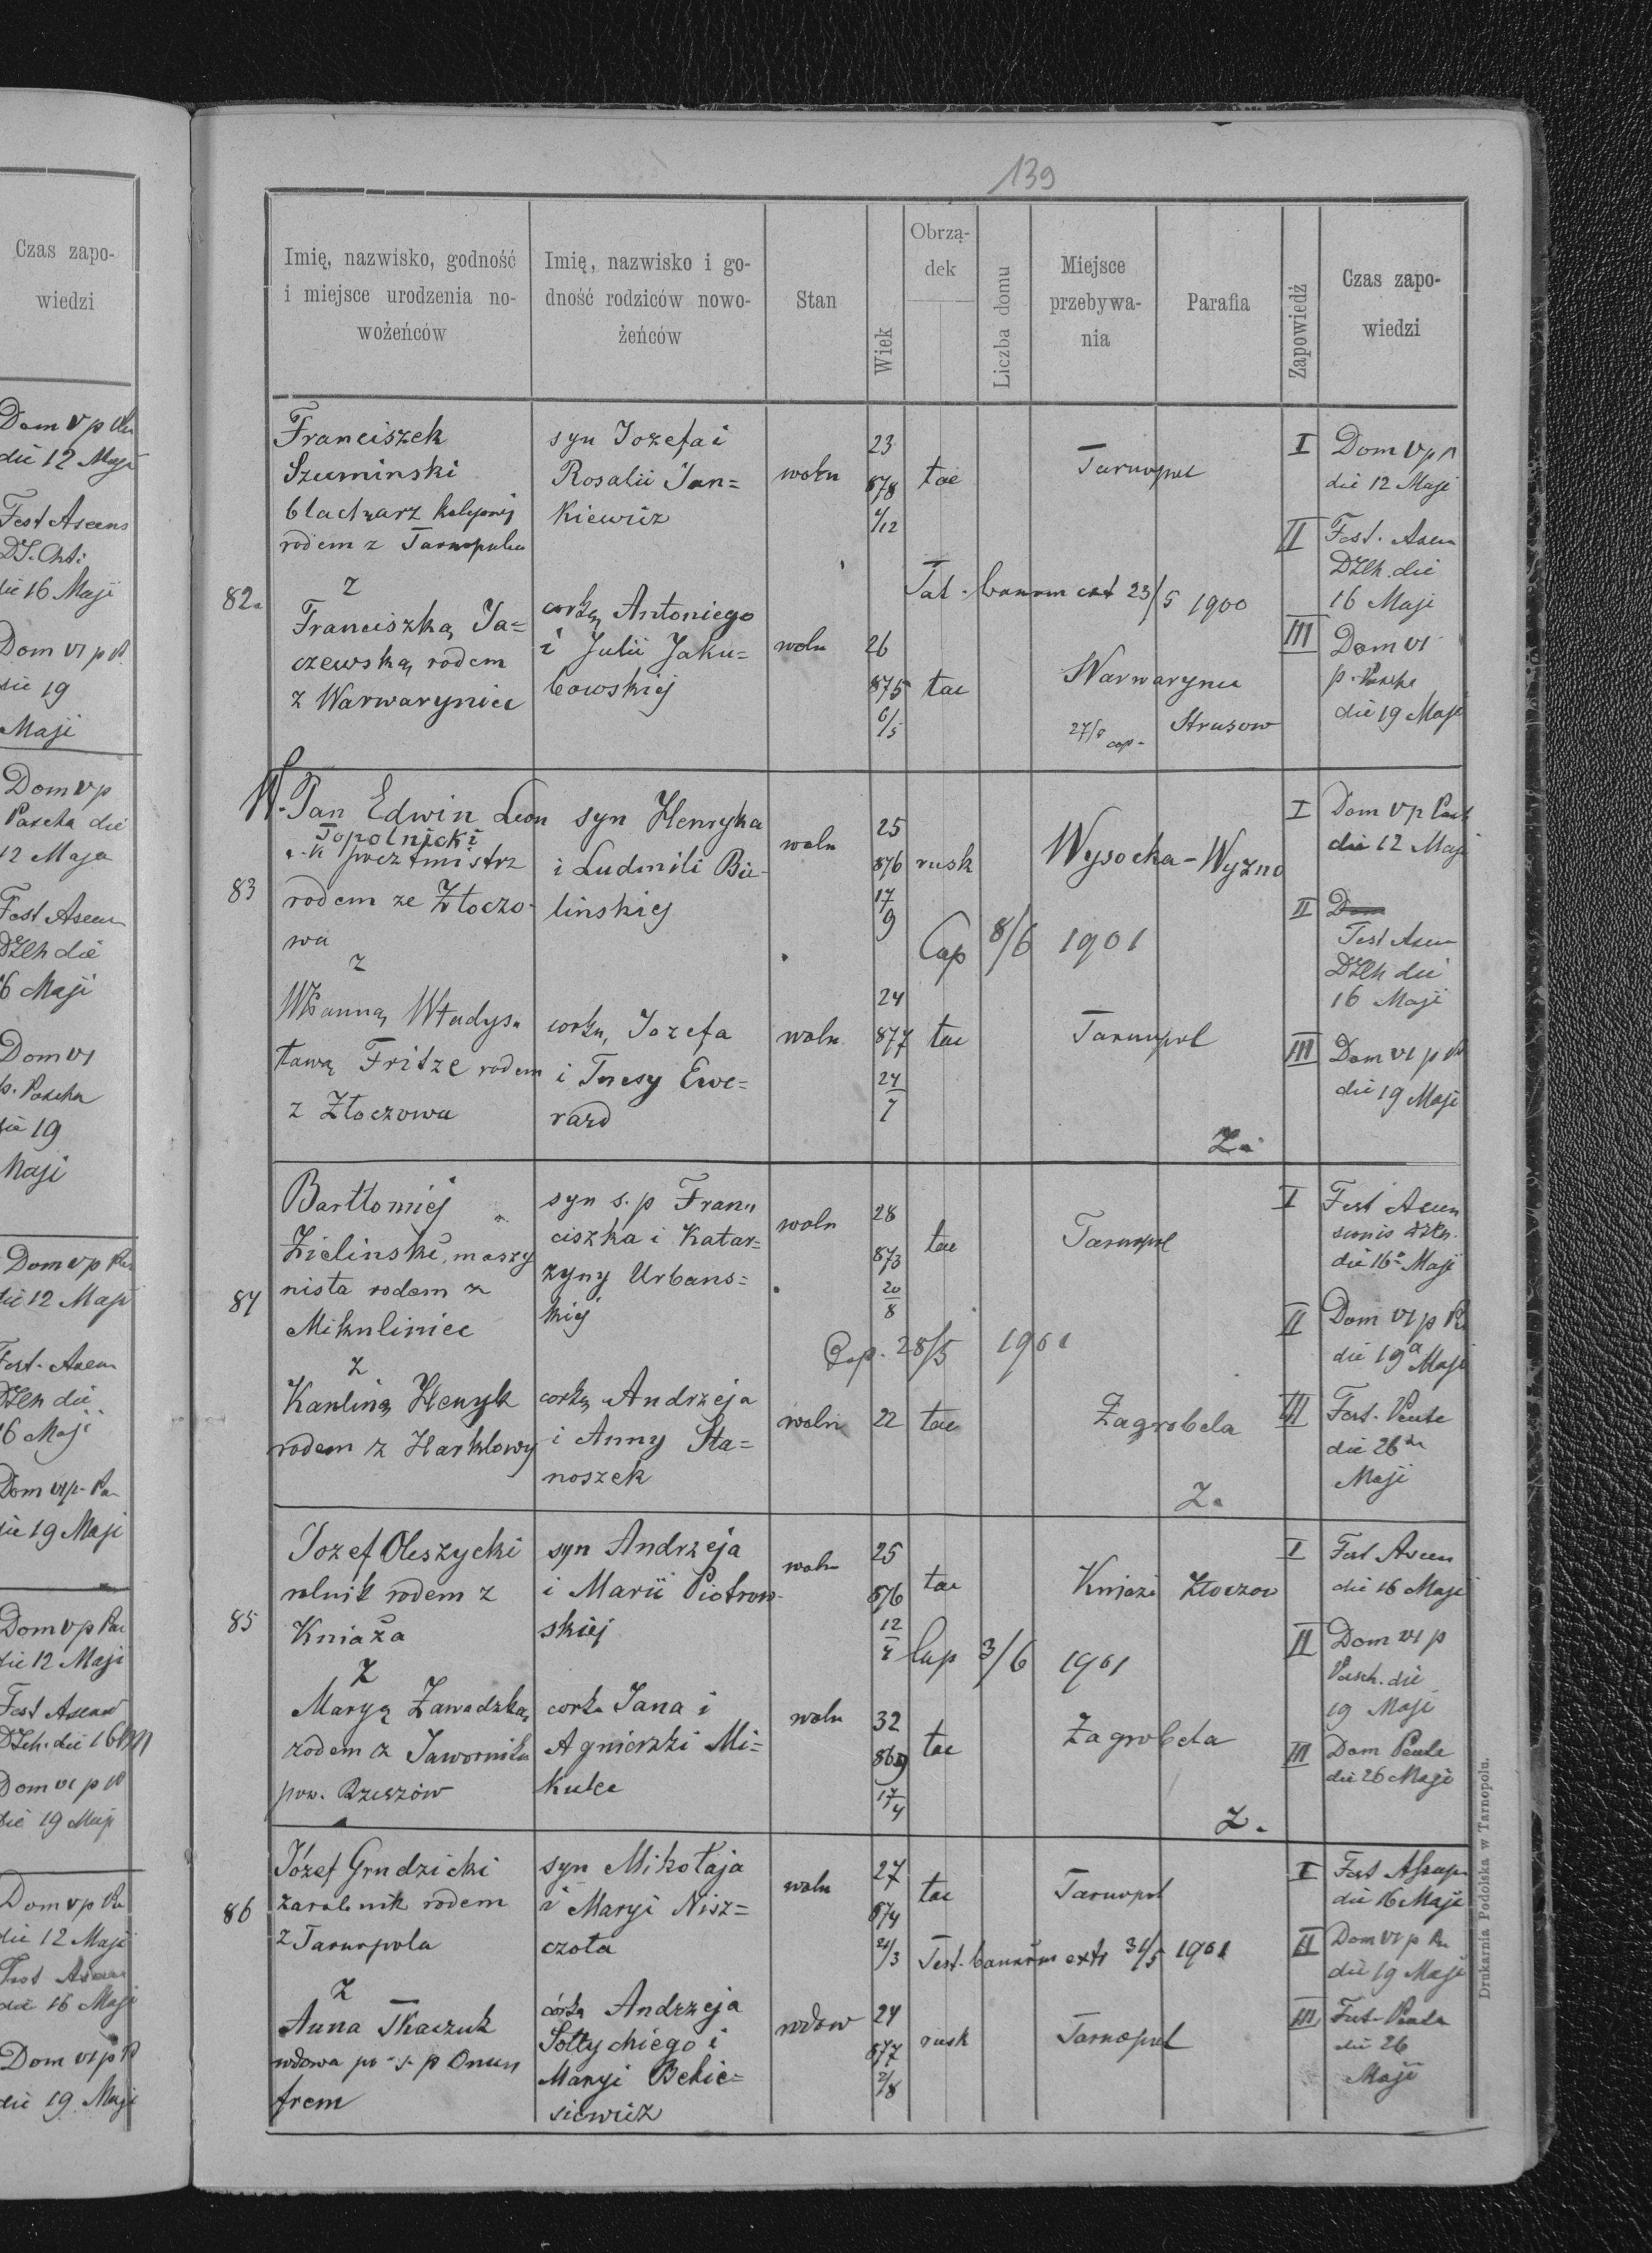 139
Czas zapo-
wiedzi
Dom V p
die 12 Maji
Fest Ascens
die 16 Maji
Dom VI p P.
die 19
Maji
Dom V p
Pascha die
12 Maja
Fest Ascen
die
16 Maji
Dom VI
p. Pascha
die 19
Maji
Dom V p
die 12 Maji
Fest. Ascen
die
16 Maji
Dom VI p. Pa
die 19 Maji
Dom V p Pas
die 12 Maji
Fest Ascens
die 16
Dom VI p P
die 19 Maji
Dom V p
die 12 Maji
Fest Ascen
die 16 Maji
Dom VI p P
die 19 Maji
Imię, nazwisko, godność
i miejsce urodzenia no-
wożeńców
Imię, nazwisko i go-
dność rodziców nowo-
żeńców
Stan
Wiek
Obrzą-
dek
Liczba domu
Miejsce
przebywa-
nia
Parafia
Zapowiedź
Czas zapo-
wiedzi
82.
Franciszek
Szuminski
blacharz
rodem z Tarnopola
z
Franciszką Ja=
czewską rodem
z Warwaryniec
syn Jozefa i
Rosalii Jan=
kiewicz
corką Antoniego
i Julii Jaku=
bowskiej
woln
woln
23
878
4/12
26
875
6/5
łac
łac
Tarnopol
23/5 1900
Warwarynce
27/5 cop.
Strusow
I Dom V p P
die 12 Maji
II Fest. Ascen
die
16 Maji
III Dom VI
p. Pascha
die 19 Maji
83
W. Pan Edwin Leon
Topolnicki
c. k poeztmistrz
rodem ze Złoczo-
wa
z
Władys=
ławą Fritze rodem
z Złoczowa
syn Henryka
i Ludmili Bie-
linskiej
corką Jozefa
i Teresy Ewe=
rard
woln
woln
25
876
17
9
24
877
24
7
rusk
łac
Wysocka - Wyzno
Cap 8/6 1901
Tarnopol
Z.
I Dom V p Pasch
die 12 Maji
II Dom
Fest Ascen
die
16 Maji
III Dom VI p P
die 19 Maji
84
Bartłomiej
Zielinski, maszy
nista rodem z
Mikuliniec
z
Karoliną Henryk
rodem z Harklowy
syn s. p Fran=
ciszka i Katar=
zyny Urbans=
kiej
corką Andrzeja
i Anny Sta=
noszek
woln
woln
28
873
20
8
22
łac
łac
Tarnopol
Cop. 28/5 1901
Zagrobela
Z.
I Fest Ascen
sionis
die 16 Maji
II Dom VI p
die 19a Maji
III Fest. Pente
die 26
Maji
85
Jozef Oleszycki
rolnik rodem z
Kniaża
z
Maryą Zawadzką
rodem z Jawornika
pow. Rzeszów
syn Andrzeja
i Marii Piotrow-
skiej
corka Jana i
Agnieszki Mi=
kulce
woln
woln
25
876
12
4
32
869
17/4
łac
łac
Kniaże
Złoczow
Cap 3/6 1901
Zagrobela
Z.
I Fest Ascen
die 16 Maji
II Dom VI p
Pasch. die
19 Maji
III Dom Pente
die 26 Maji
86
Józef Grudzicki
zarobnik rodem
z Tarnopola
z
Anna Tkaczuk
wdowa po s. p Onun
frem
syn Mikołaja
i Maryi Nisz=
czota
córką Andrzeja
Sołtychiego i
Maryi Bekie=
siewicz
woln
wdow
27
874
21/3
24
877
2/8
łac
rusk
Tarnopol
Test. bannorum extr 31/5 1901
Tarnopol
I Fest
die 16 Maji
II Dom VI p
die 19 Maji
III Fest. Pente
die 26
Maji
Drukarnia Podolska w Tarnopolu.